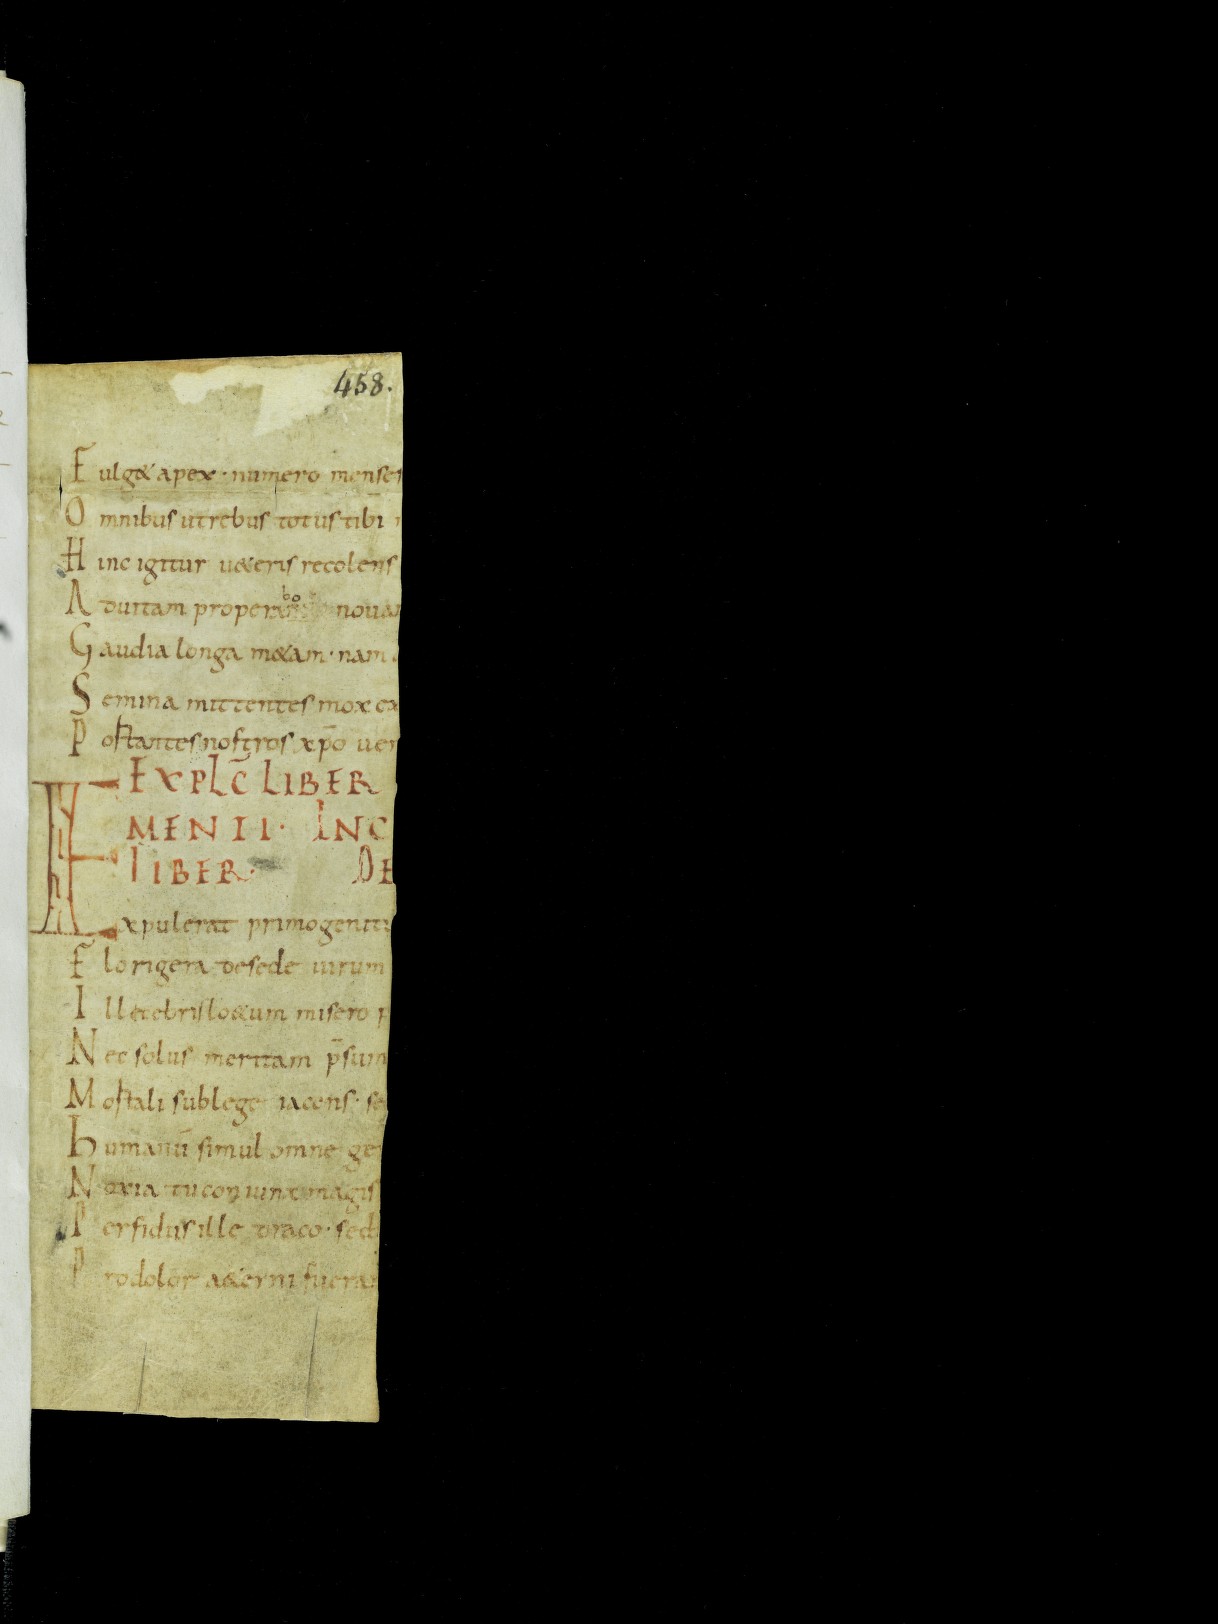 458.
Fulget apex · numero menses
Omnibus ut rebus totus tibi
Hinc igitur ueteris recolens
Ad uitam propera nouam
Gaudia longa metam · nam
Semina mittentes mox ex
Post antes nostros xp̄o uer
EXPLC̄ LIBER
MENII · INC
LIBER · DE
Expulerat primogenitu
Florigera de sede uirum
Illecebris loetum misero p
Nec solus meritam p̄sum
Mostali sub lege iacens · se
humanū simul omne ge
Noxia tu coniunx magis
Perfidus ille draco · sed
Pro dolor aeterni fuera